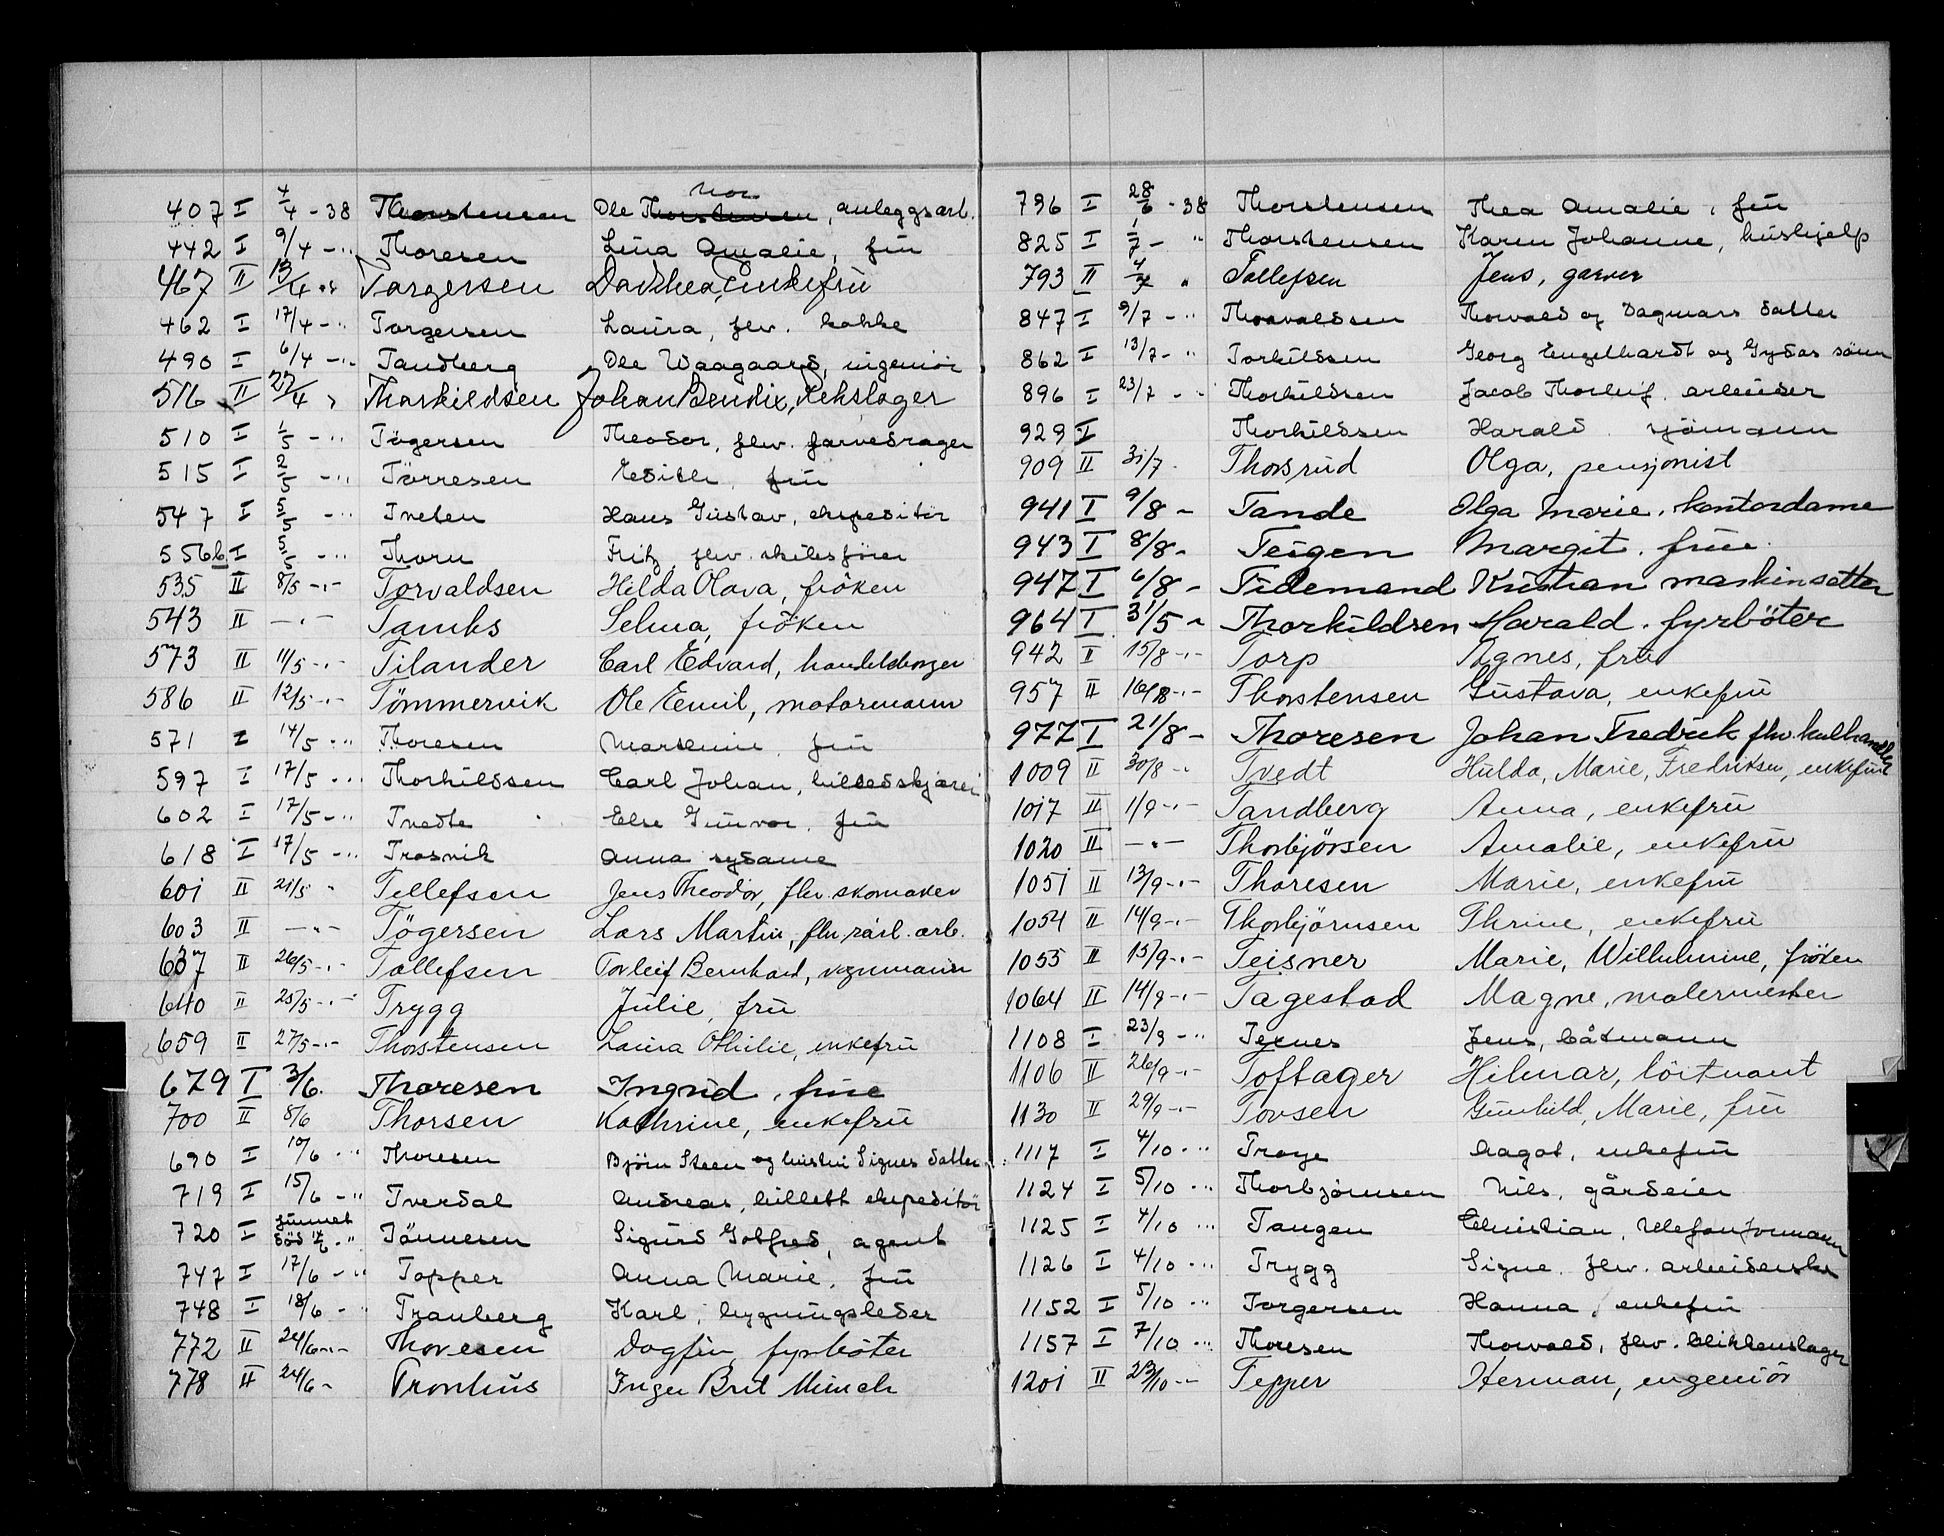 407 I 4/4 - 38 Thorstensen Ole Thorstensen, anleggsarb.
442 I 9/4 - " Thoresen Lina Amalie, frü
467 II 13/4 " Torgersen Dorthea, Enkefrü
462 I 17/4 - " Torgersen Laura, flw. kokke
490 I 6/4 - " Tandberg Ole Waagaard, ingeniör
516 II 27/4 " Thorkildsen Johan Bendix, Rekslager
510 I 1/5 - " Tögersen Theodor, flw. farvedrager
515 I 2/5 - " Törresen Edith, frü
547 I 5/5 - " Tveten Hans Güstav, ekspeditör
556b I 5/5 - " Thorn Fritz, flw. skibsförer
535 II 8/5 - " - Torvaldsen Hilda Olava, fröken
543 II - " - Tambs Selma, fröken
573 II 11/5 - " - Tilander Carl Edvard, handelsborger
586 II 12/5 - " - Tömmervik Ole Emil, motormann
571 I 14/5 - " Thoresen Marthine, frü
597 I 17/5 - " Thorkildsen Carl Johan, billedskjærer
602 I 17/5 - " Tvedte Else Günvor, frü
618 I 17/5 - " Trosvik Anna sydame
601 II 21/5 " Tellefsen Jens Theodor, flw. skomaker
603 II - " - Tögersen Lars Martin, flw. rørl. arb.
637 II 26/5 - " - Tollefsen Torleif Bernhard, vognmann
640 II 25/5 - " - Trygg Jülie, frü
659 II 27/5 - " - Thorstensen Laura Othilie, enkefrü
679 I 3/6. Thoresen Ingrid, frue
700 II 8/6 Thorsen Kathrine, enkefrü
690 I 10/6 " Thoresen Björn Steen og hustru Signes datter
719 I 15/6 - " Tverdal Andreas, billett ekspeditör
720 I fünnet död 17/6 " Tönnesen Sigürd Gotfred, agent
747 I 17/6 - " Topper Anna Marie, frü
748 I 18/6 - " Tranberg Karl, bygningsleder
772 II 24/6 - " - Thoresen Dagfin, fyrböter
778 II 24/6 - Tronhüs Inger Brit Münch
796 I 28/6 - 38 Thorstensen Thea Amalie, frü
825 I 1/7 - " Thorstensen Karen Johanne, hüshjelp
793 II 4/7 " Tollefsen Jens, garver
847 I 9/7 - " Thorvaldsen Thorvald og Dagmars datter
862 I 13/7 - " Torkildsen Georg Engelhardt og Gydas sönn
896 I 23/7 - " Thorkildsen Jacob Thorleif, arbeider
929 I Thorkildsen Harald, sjömann
909 II 31/7. Thorsrüd Olga, pensjonist
941 I 9/8 - Tande Olga Marie, kontordame
943 I 8/8 - Teigen Margit, frue.
947 I 6/8 - Tidemand Kristian maskinsetter
964 I 31/5 - Thorkildsen Harald, fyrböter
942 I 15/8 - " - Torp Agnes, frü
957 II 16/8 - " - Thorstensen Güstava, enkefrü
977 I 21/8 - Thoresen Johan Fredrik flw. kulhandler
1009 II 30/8 - " Tvedt Hülda, Marie, Fredriksen, enkefrü
1017 II 1/9 - " - Tandberg Anna, enkefrü
1020 II - " - Thorbjörsen Amalie, enkefrü
1051 II 13/9 - " - Thoresen Marie, enkefrü
1054 II 14/9 - " - Thorbjörnsen Thrine, enkefrü
1055 II 15/9 - " - Teisner Marie, Wilhelmine, fröken
1064 II 14/9 - " - Tagestad Magne, malermester
1108 I 23/9 - " Texnes Jens, båtmann
1106 II 26/9 - " - Toftager Hilmar, löitnant
1130 II 29/9 - " - Tovsen Günhild, Marie, frü
1117 I 4/10 - " Troye Aagot, enkefrü
1124 I 5/10 - " Thorbjörnsen Nils, gårdeier
1125 I 4/10 - " Tangen Christian, telefonformann
1126 I 4/10 - " Trygg Signe, flw. arbeiderske
1152 I 5/10 - " Torgersen Hanna, enkefrü
1157 I 7/10 - " Thoresen Thorvald, flw. blikkenslager
1201 II 23/10 - " Tepper Herman, ingeniör